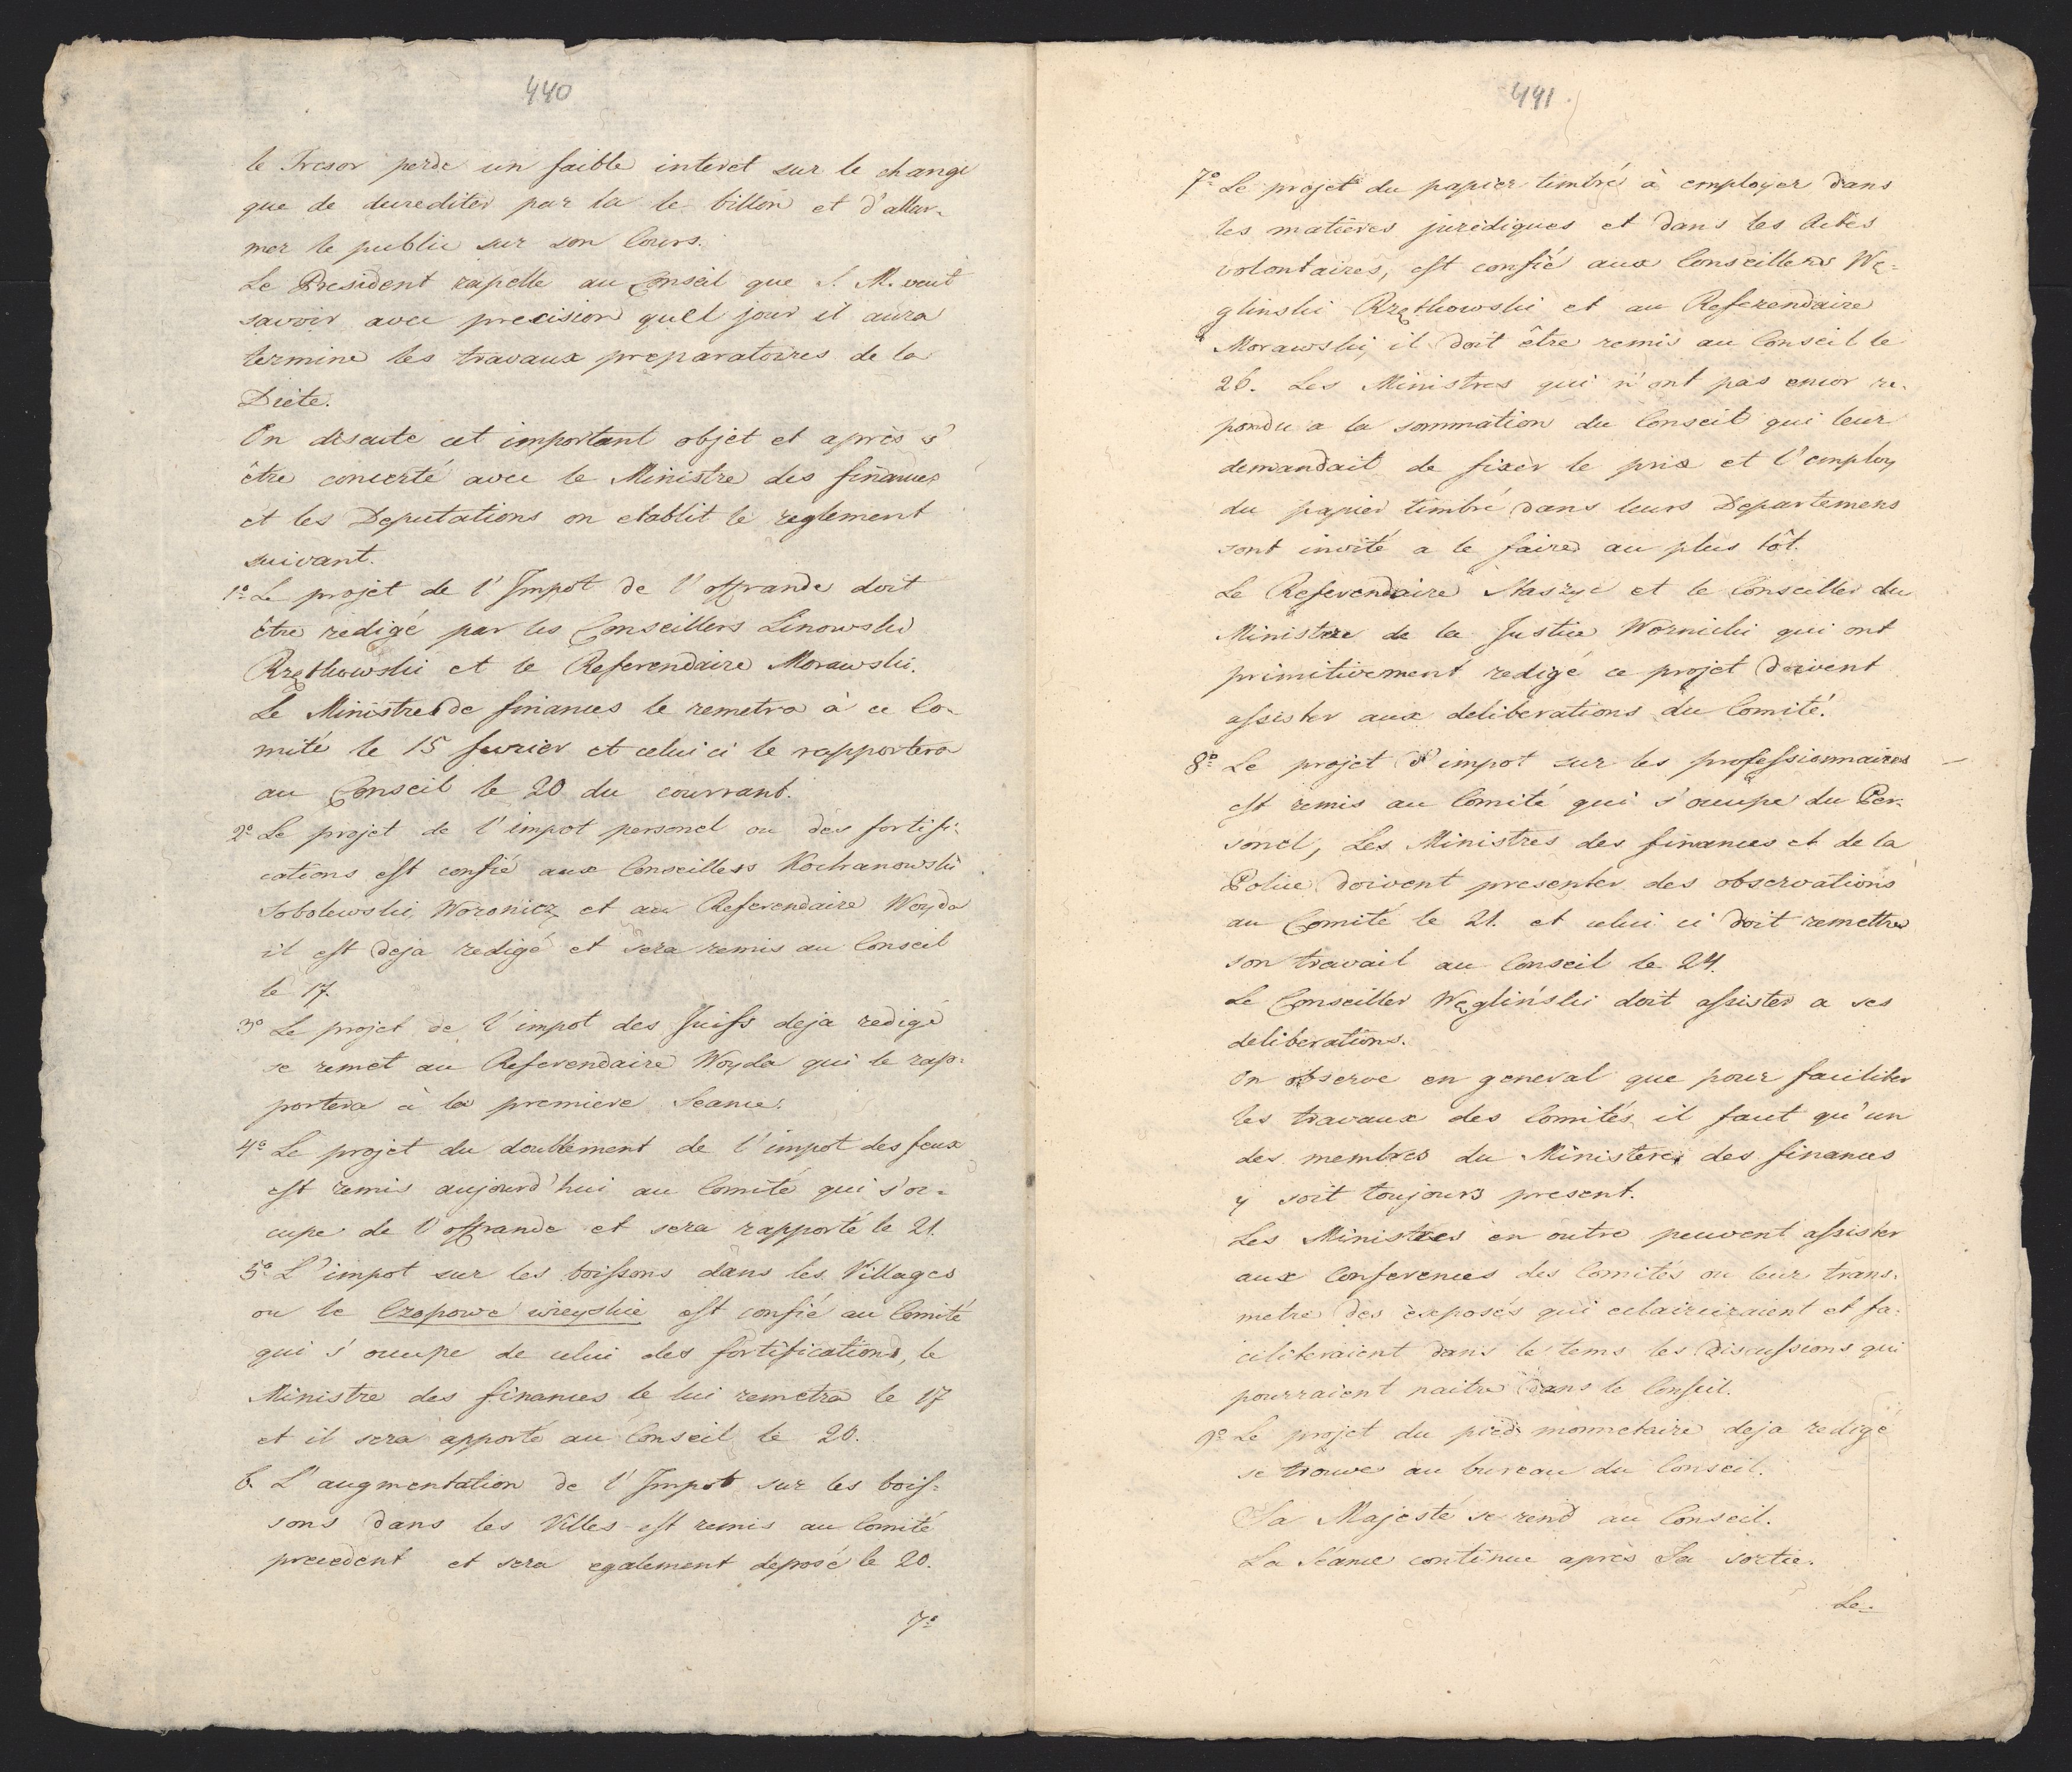 440
le Tresor perde un faible interet sur le change
que de decrediter par la le billon et d'allar-
mer le public sur son Cours.
Le President rapelle au Conseil que S. M. veut
savoir avec precision quel jour il aura
termine les travaux preparatoires de la
Diete.
On discute cet important objet et après s'
être concerté avec le Ministre des finances
et les Deputations on etablit le reglement
suivant.
1º Le projet de l'Impôt de l'offrande doit
être redigé par les Conseillers Linowski
Rzętkowski et le Referendaire Morawski.
Le Ministre de finances le remetra à ce Co-
mité le 15 fevrier et celui ci le rapportera
au Conseil le 20 du courrant.
2º Le projet de l'impot personel ou des fortifi-
cations est confié aux Conseillers Kochanowski
Sobolewski, Woronicz et au Referendaire Woyda
il est deja redigé et sera remis au Conseil
le 17.
3º Le projet de l'impot des Juifs deja redigé
se remet au Referendaire Woyda qui le rap-
portera à la premiere Seance.
4º Le projet du doublement de l'impot des feux
est remis aujourd'hui au Comité qui s'oc-
cupe de l'offrande et sera rapporté le 21.
5º L'impot sur les boissons dans les Villages
ou le Czopowe wieyskie est confié au Comité
qui s'occupe de celui des fortifications, le
Ministre des finances le lui remetra le 17
et il sera apporté au Conseil le 20.
6. L'augmentation de l'Impot sur les bois-
sons dans les Villes est remis au Comité
precedent et sera egalement deposé le 20.
7º
441
7º Le projet du papier timbré à employer dans
les matieres juridiques et dans les Actes
volontaires, est confié aux Conseillers Wę-
glinski Rzętkowski et au Referendaire
Morawski, il doit être remis au Conseil le
26. Les Ministres qui n'ont pas encor re-
pondu a la sommation du Conseil qui leur
demandait de fixer le prix et l'employ
du papier timbré dans leurs Departemens
sont invité a le faire au plus tôt.
Le Referendaire Staszyc et le Conseiller du
Ministre de la Justice Woznicki qui ont
primitivement redigé ce projet doivent
assister aux deliberations du Comité.
8º Le projet d'impot sur les professionnaires
est remis au Comité qui s'occupe du Per-
sonel, Les Ministres des finances et de la
Police doivent presenter des observations
au Comité le 21. et celui ci doit remettre
son travail au Conseil le 24.
Le Conseiller Węgliński doit assister a ses
deliberations.
On observe en general que pour faciliter
les travaux des Comités, il faut qu'un
des membres du Ministere des finances
y soit toujours present.
Les Ministres en outre peuvent assister
aux Conferences des Comités ou leur trans-
metre des exposés qui eclairciraient et fa-
ciliteraient dans le tems les discussions qui
pourraient naitre dans le Conseil.
9º Le projet du pied monnetaire deja redigé
se trouve au bureau du Conseil.
Sa Majesté se rend au Conseil.
La Séance continue après Sa sortie.
Le-